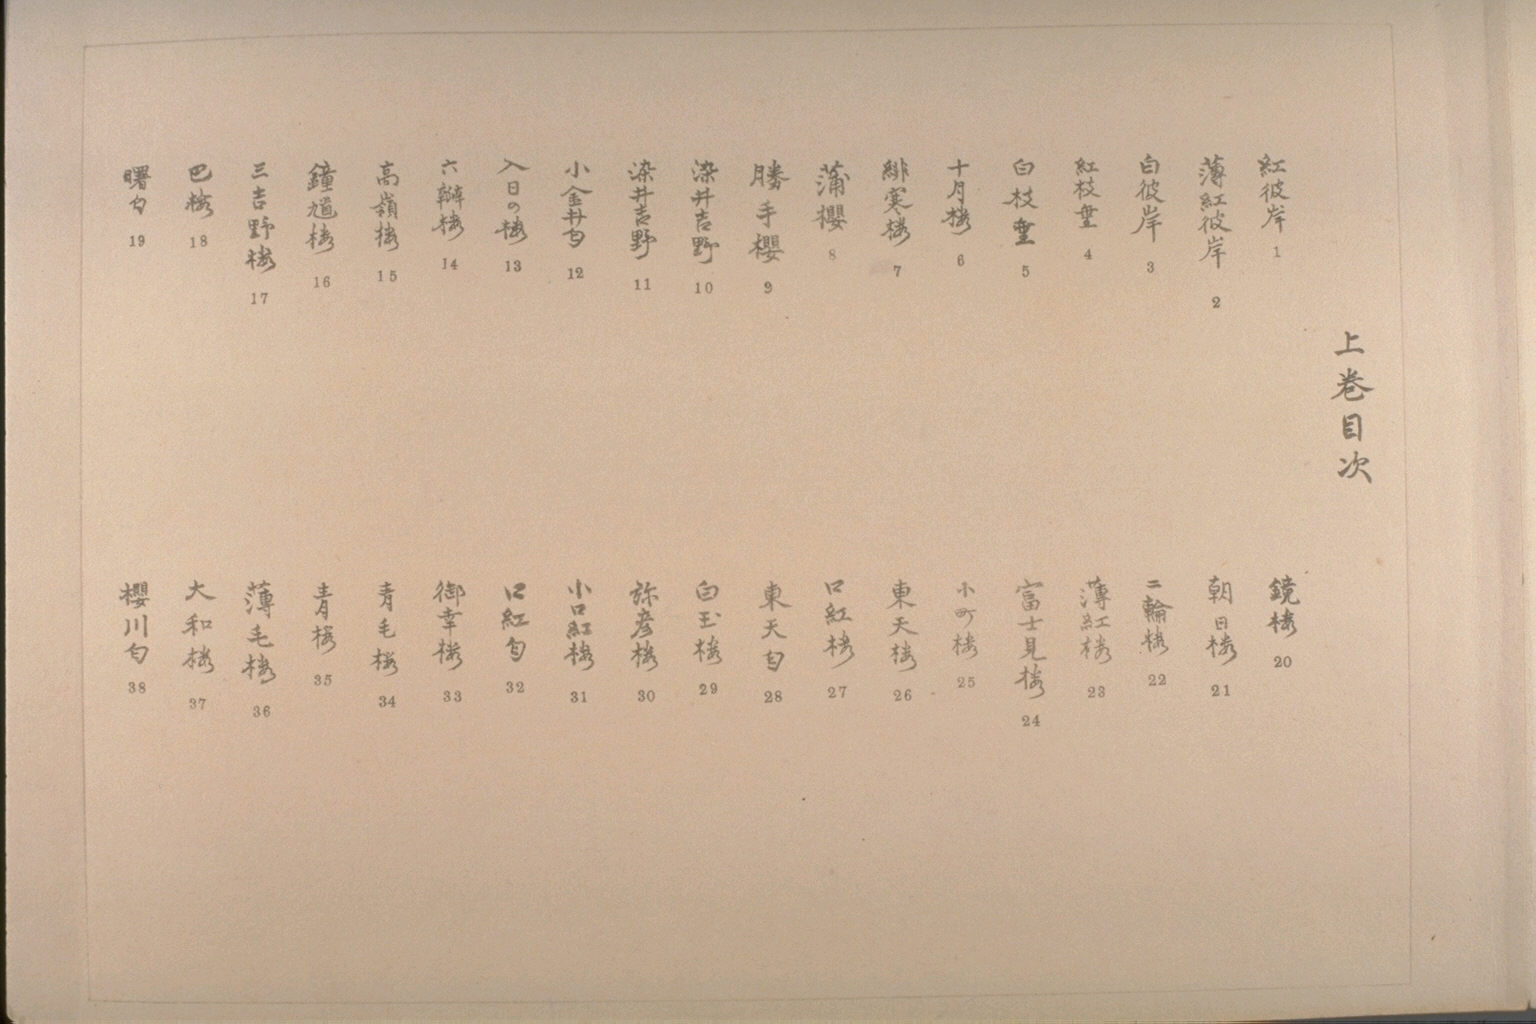 上巻目次
紅彼岸 1
薄紅彼岸 2
白彼岸 3
紅枝垂 4
白枝垂 5
十月櫻 6
緋寒櫻 7
蒲櫻 8
勝手櫻 9
染井吉野 10
染井吉野 11
小金井匂 12
入日の櫻 13
六瓣櫻 14
高嶺櫻 15
鐘馗櫻 16
三吉野櫻 17
巴櫻 18
曙匂 19
鏡櫻 20
朝日櫻 21
二輪櫻 22
薄紅櫻 23
富士見櫻 24
小町櫻 25
東天櫻 26
口紅櫻 27
東天匂 28
白玉櫻 29
弥彦櫻 30
小口紅櫻 31
口紅匂 32
御幸櫻 33
青毛櫻 34
青櫻 35
薄毛櫻 36
大和櫻 37
櫻川匂 38